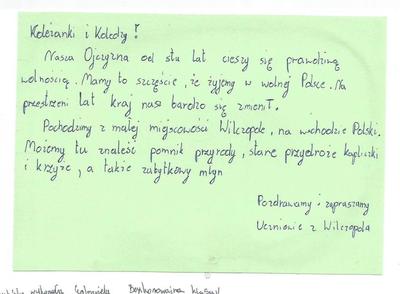 Koleżanki i Koledzy!
Nasza Ojczyzna od stu lat cieszy się prawdziwą
wolnością. Mamy to szczęście, że żyjemy w wolnej Polsce. Na
przestrzeni lat kraj nasz bardzo się zmienił.
Pochodzimy z małej miejscowości Wilczopole, na wschodzie Polski.
Możemy tu znaleść pomnik przyrody, stare przydrożne kapliczki
i krzyże, a także zabytkowy młyn
Pozdrawiamy i zapraszamy
Uczniowie z Wilczopola